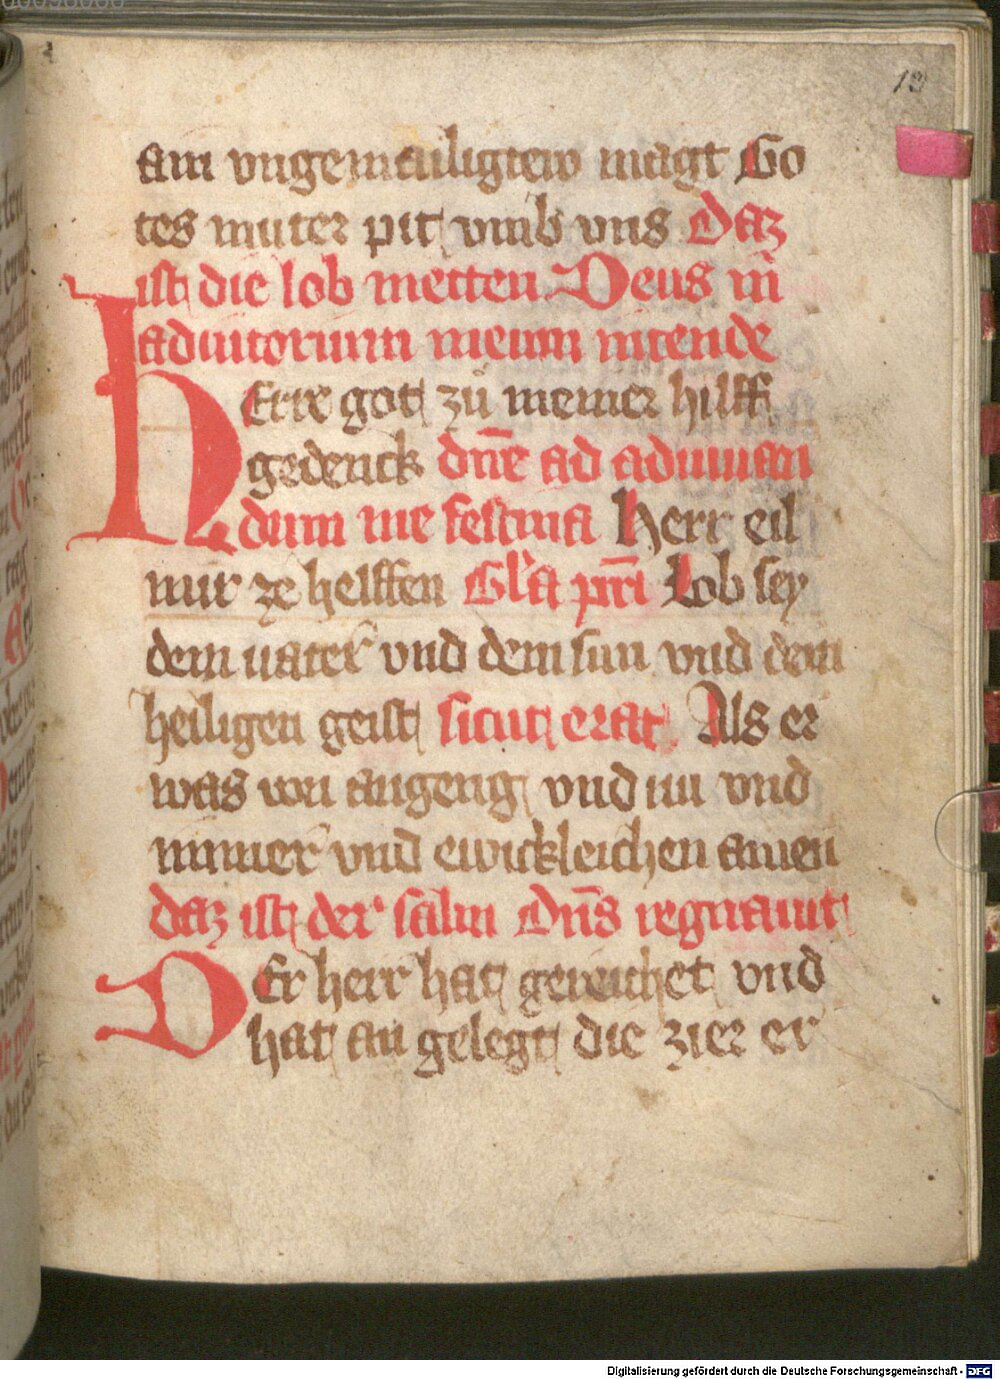 13
ain vngemailigtew magt Go
tes muter pit vmb vns Daz
ist die lob metten Deus in̄
adiutorium meum intende
HErre got zu meiner hilff
gedenck dn̄e ad adiuuan
dum me festina Herr eil
mir ze helffen Gl̄a pr̄i Lob sey
dem uater vnd dem sun vnd dem
heiligen geist sicut erat Als er
was von angeng vnd nu vnd
immer vnd ewickleichen amen
daz ist der salm Dn̄s regnauit
DEr herr hat gereichet vnd
hat an gelegt die zier er
Digitalisierung gefördert durch die Deutsche Forschungsgemeinschaft - DFG